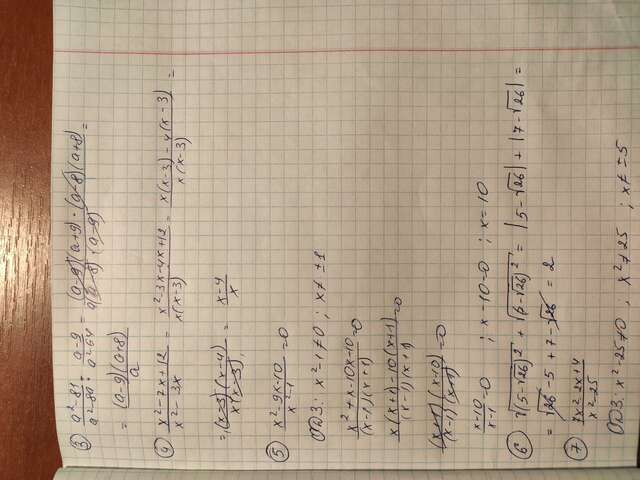 ③ a²-81/a²-8a : a-9/a²-64 = (a-9)(a+9)·(a-8)(a+8)/a(a-8)·(a-9) =
= (a-9)(a+8)/a
④ x²-7x+12/x²-3x = x²-3x-4x+12/x(x-3) = x(x-3)-4(x-3)/x(x-3) =
= (x-3)(x-4)/x(x-3) = x-4/x
⑤ x²-9x-10/x²-1 = 0
ОДЗ: x²-1≠0 ; x≠±1
x²+x-10x-10/(x-1)(x+1) = 0
x(x+1)-10(x+1)/(x-1)(x+1) = 0
(x+1)(x+10)/(x-1)(x+1) = 0
x-10/x-1 = 0 ; x-10=0 ; x=10
⑥ √(5-√26)² + √(6-√26)² = |5-√26| + |7-√26| =
= √26-5+7-√26 = 2
⑦ x²-25
ОДЗ: x²-25≠0 ; x²≠25 ; x≠±5